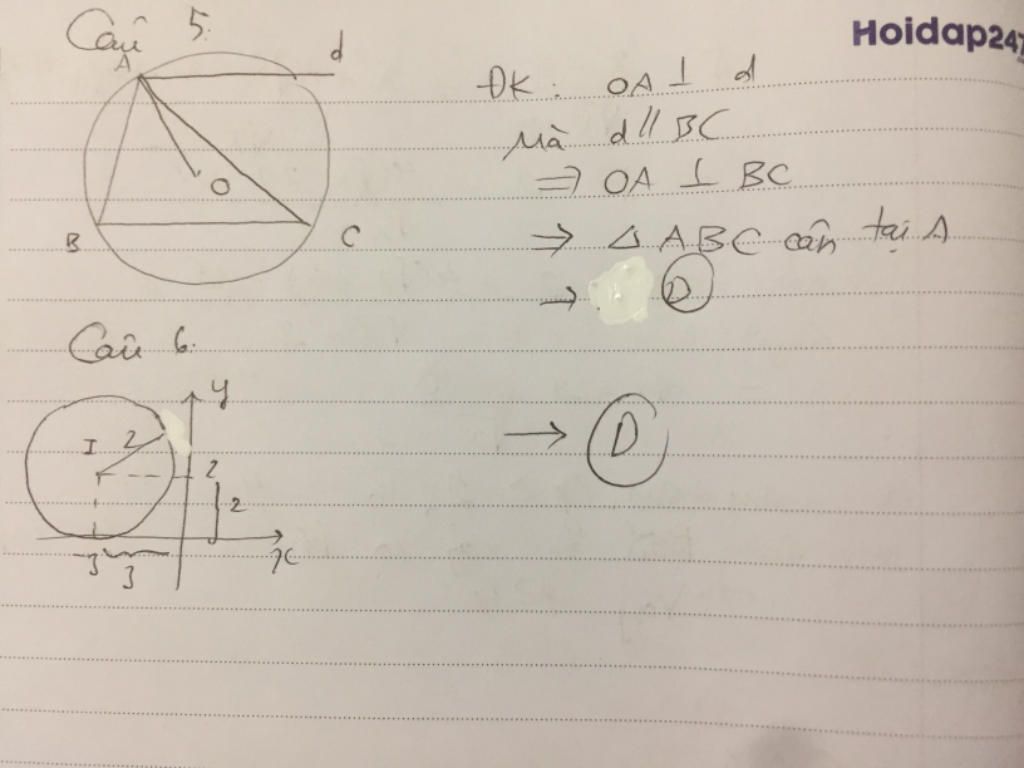 Hoidap247
Câu 5:
A
d
O
B
C
ĐK: OA ⊥ d
Mà d // BC
=> OA ⊥ BC
=> △ ABC cân tại A
→ D
Câu 6:
y
I
2
2
2
x
-3
3
→ D